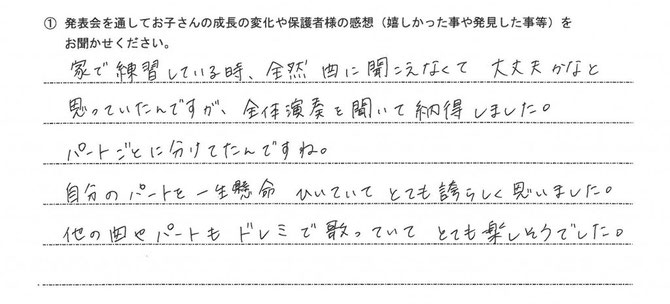 ① 発表会を通してお子さんの成長の変化や保護者様の感想（嬉しかった事や発見した事等）を
お聞かせください。
家で練習している時、全然曲に聞こえなくて 大丈夫かなと
思っていたんですが、全体演奏を聞いて納得しました。
パートごとに分けてたんですね。
自分のパートを一生懸命 ひいていて とても誇らしく思いました。
他の曲やパートも ドレミで歌っていて とても楽しそうでした。